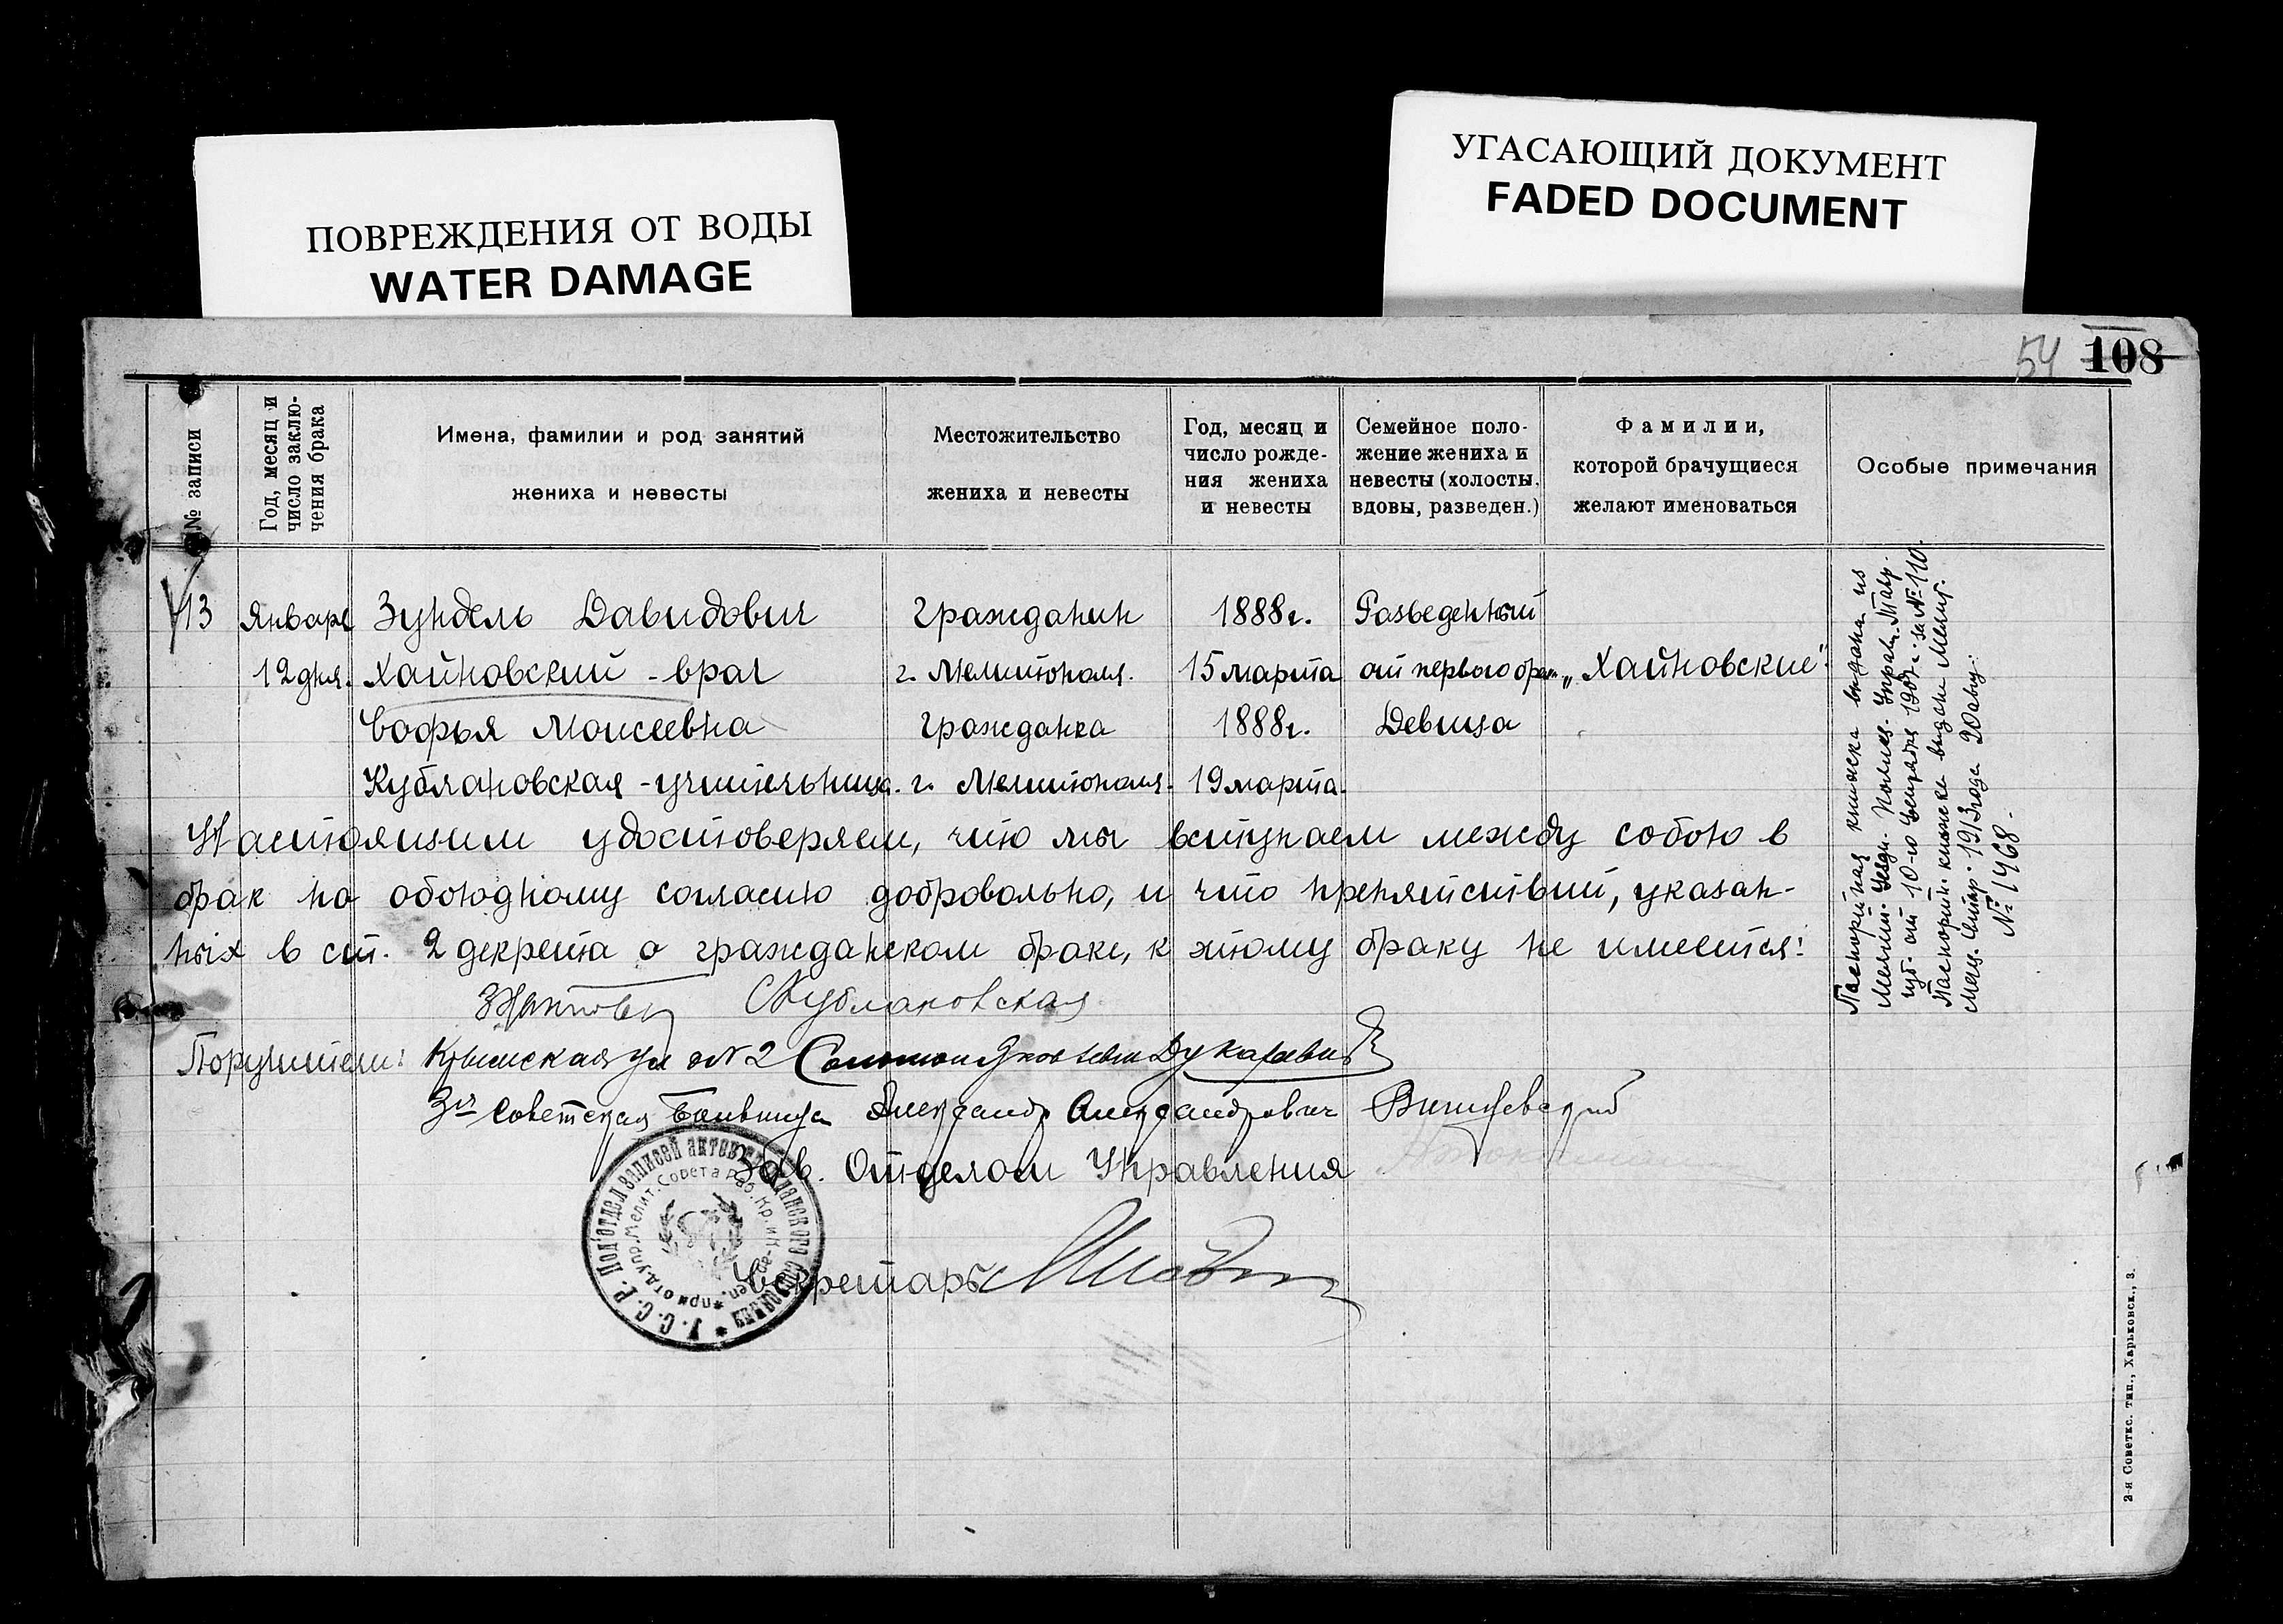 ПОВРЕЖДЕНИЯ ОТ ВОДЫ
WATER DAMAGE
УГАСАЮЩИЙ ДОКУМЕНТ
FADED DOCUMENT
54 108
№ записи
Год, месяц и
число заклю-
чения брака
Имена, фамилии и род занятий
жениха и невесты
Местожительство
жениха и невесты
Год, месяц и
число рожде-
ния жениха
и невесты
Семейное поло-
жение жениха и
невесты (холосты,
вдовы, разведен.)
Фамилии,
которой брачущиеся
желают именоваться
Особые примечания
13 Января Зундель Давидович гражданин 1888г. Разведенный
12 дня. Хайновский - врач г. Мелитополя. 15 марта от первого брака „Хайновские"
Софья Моисеевна гражданка 1888г. Девица
Кублановская - учительница. г. Мелитополя. 19 марта.
Настоящим удостоверяем, что мы вступаем между собою в
брак по обоюдному согласию добровольно, и что препятствий, указан-
ных в ст. 2 декрета о гражданском браке, к этому браку не имеется:
СКублановская
Поручители: Крымская ул № 2 Соломон Яковлевич
3я Советская Больница Александр Александрович Вишневский
Зав. Отделом Управления
Секретарь
У.С.С.Р. Под'отдел записей актов гражданского состояния
при отд. упр. Мелит. Совета Раб. Кр. и Кр-ар. Деп.
Паспортная книжка выдана из
Мелит. Уездн. Полиц. Управ. Тавр.
губ. от 10-го 1907г. за № 110.
Паспорт. книжка выдана Мелит.
Мещ. Стар. 1913 года 20
№ 1468.
2-я Советск. тип., Харьковск., 3.